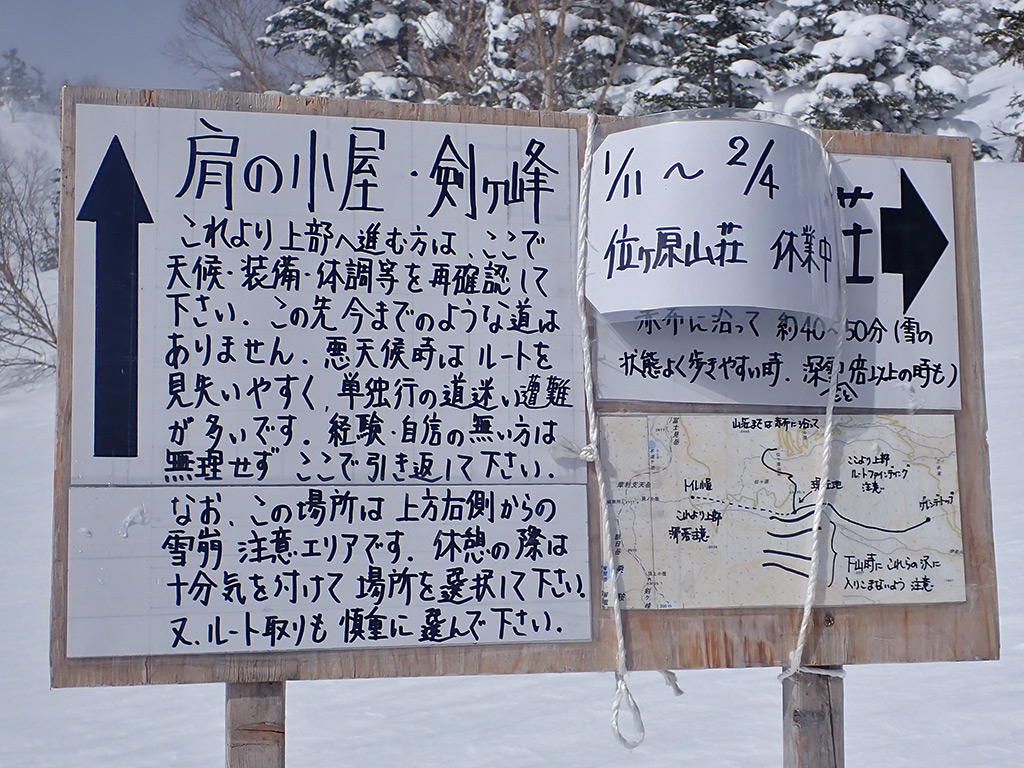 肩の小屋・剣ヶ峰
これより上部へ進む方は、ここで
天候・装備・体調等を再確認して
下さい．この先今までのような道は
ありません．悪天候時はルートを
見失いやすく、単独行の道迷い遭難
が多いです．経験・自信の無い方は
無理せず ここで引き返して下さい．
なお、この場所は上方右側からの
雪崩 注意エリアです．休憩の際は
十分気を付けて 場所を選択して下さい．
又、ルート取りも 慎重に 選んで下さい．
1/11 〜 2/4
位ヶ原山荘 休業中
赤布に沿って 約40〜50分(雪の
状態よく歩きやすい時．深雪 倍以上の時も)
富士見岳
ここより上部
ルートファインディング
注意
摩利支天岳
トイレ小屋
現在地
これより上部
滑落注意
朝日岳
剣ヶ峰
下山時に これらの沢に
入りこまないよう 注意